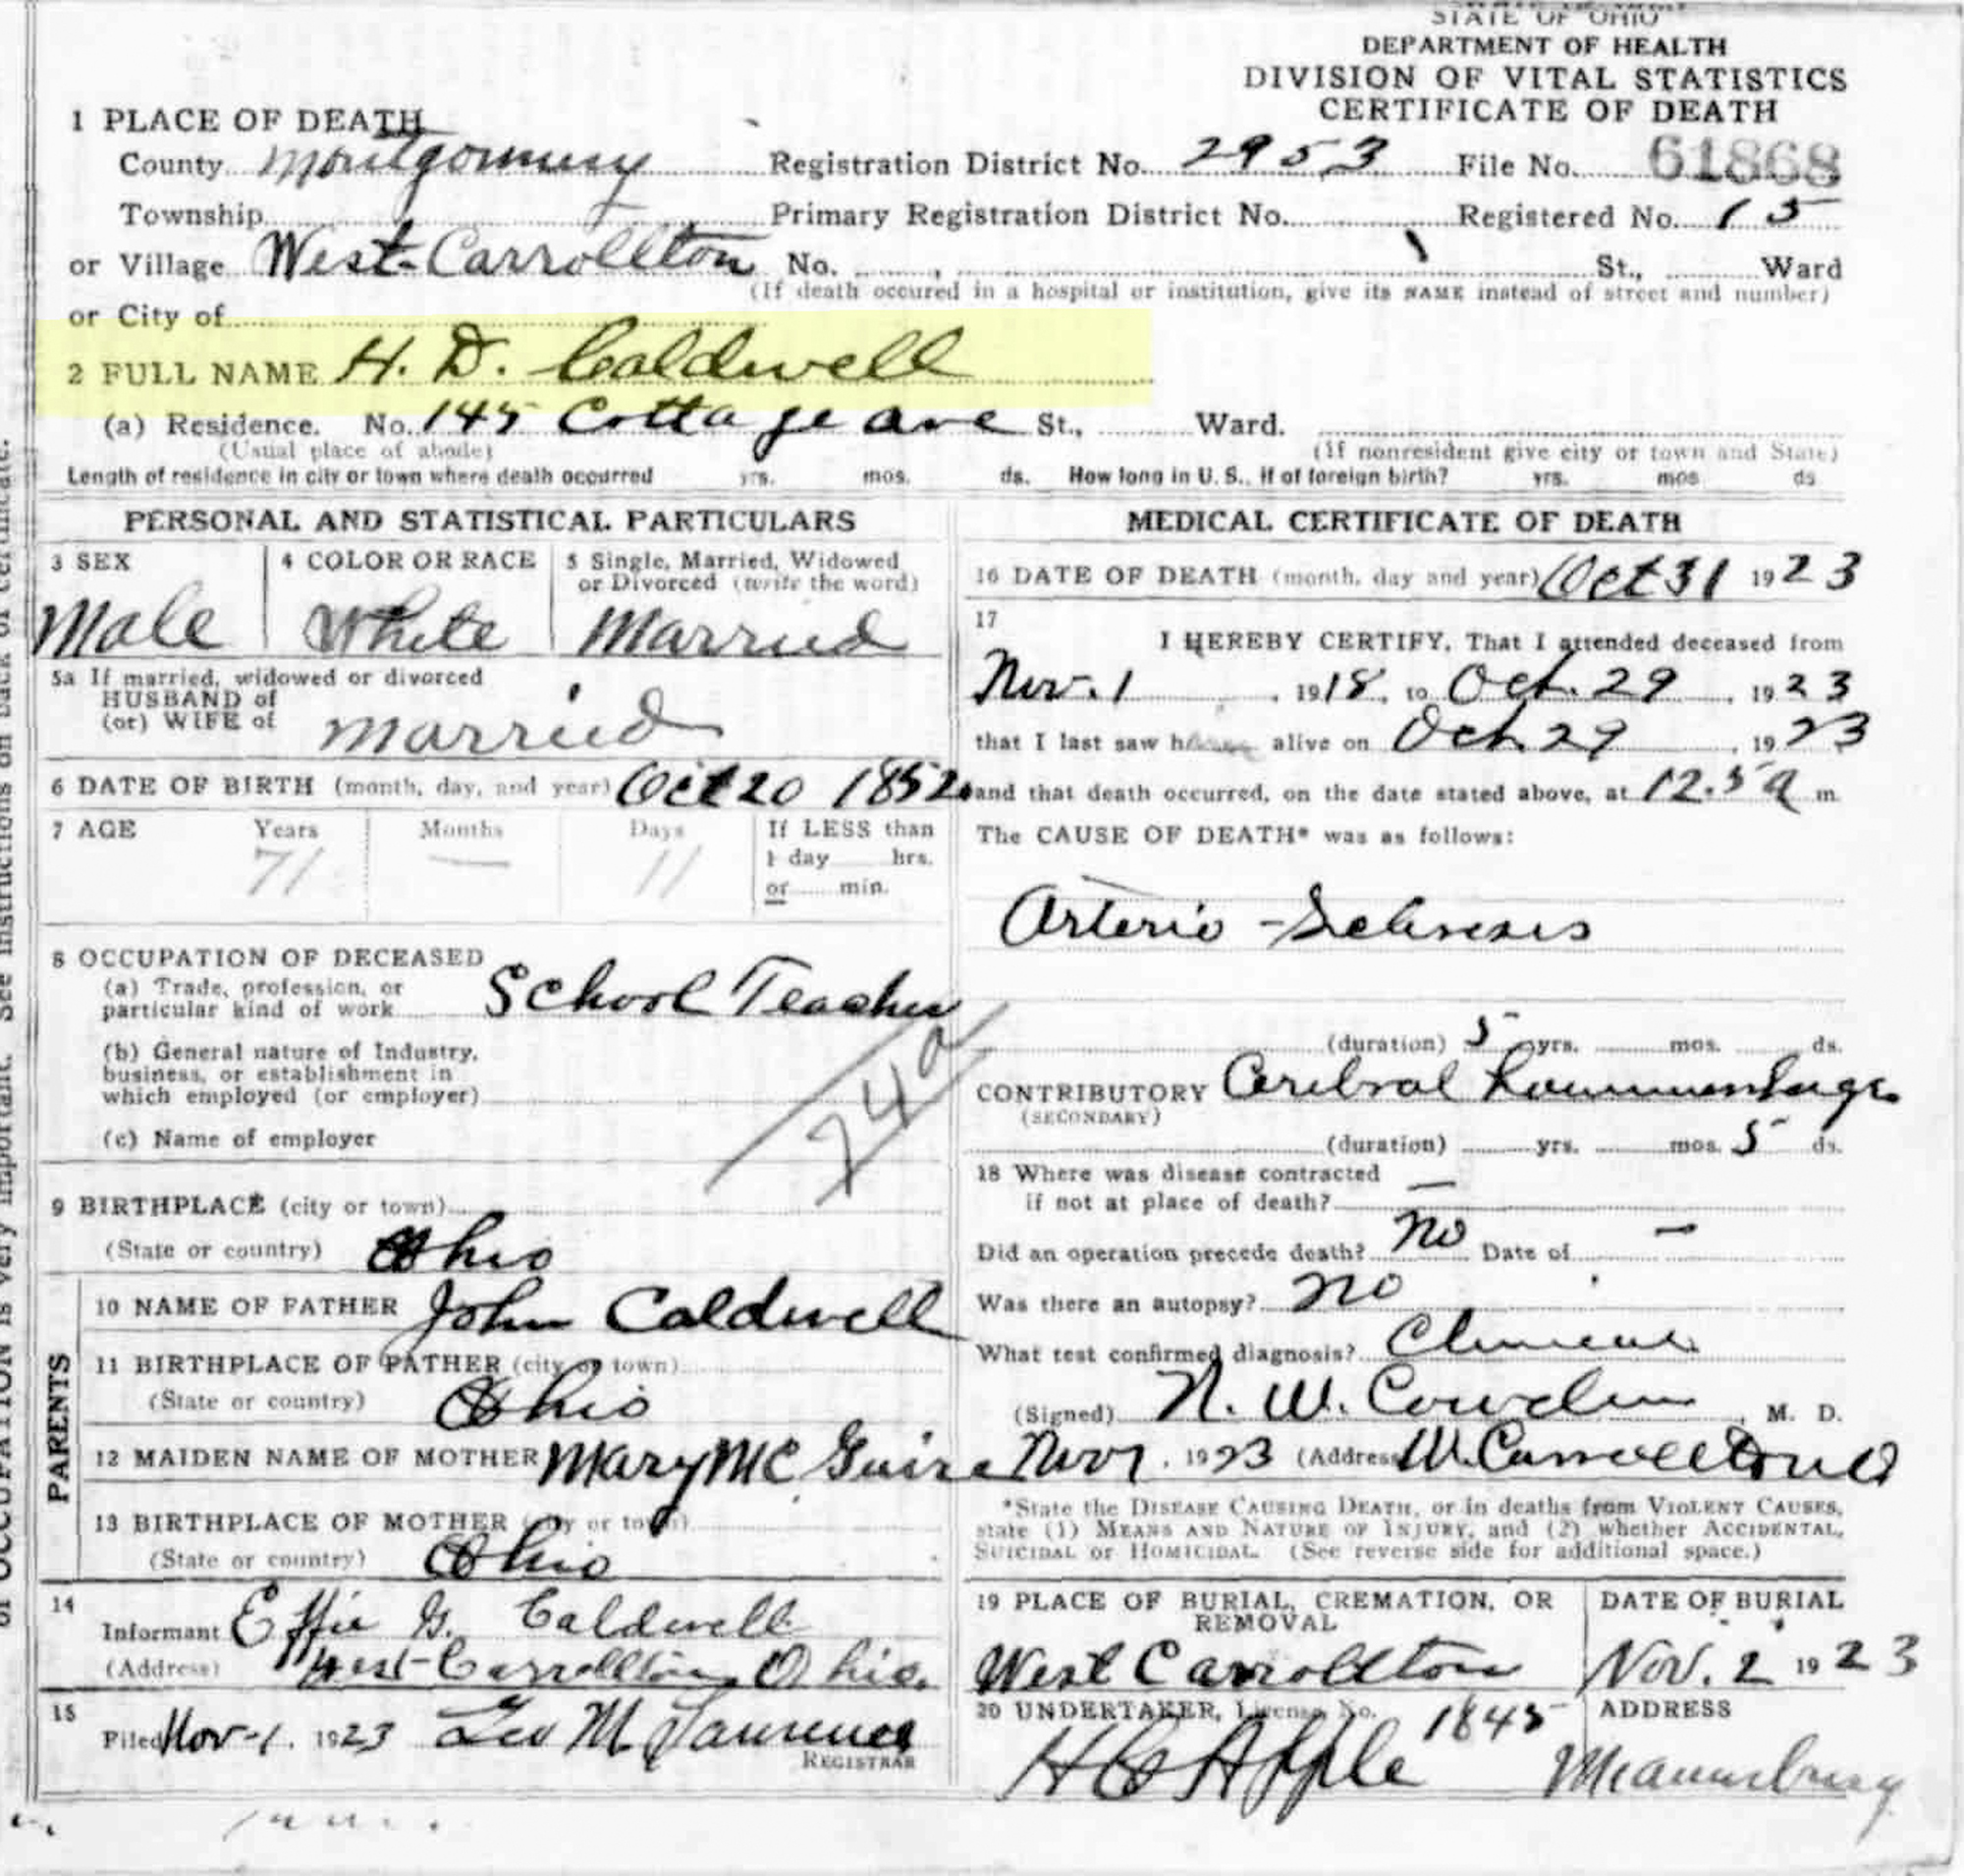 STATE OF OHIO
DEPARTMENT OF HEALTH
DIVISION OF VITAL STATISTICS
CERTIFICATE OF DEATH
1 PLACE OF DEATH
County Montgomery Registration District No. 2953 File No. 61868
Township Primary Registration District No. Registered No. 15
or Village West-Carrollton No. St., Ward
(If death occured in a hospital or institution, give its NAME instead of street and number)
or City of
2 FULL NAME H. D. Caldwell
(a) Residence. No. 145 Cottage ave St., Ward.
(Usual place of abode) (If nonresident give city or town and State)
Length of residence in city or town where death occurred yrs. mos. ds. How long in U. S., if of foreign birth? yrs. mos ds
PERSONAL AND STATISTICAL PARTICULARS
3 SEX 4 COLOR OR RACE 5 Single, Married, Widowed
or Divorced (write the word)
Male White Married
5a If married, widowed or divorced
HUSBAND of
(or) WIFE of married
6 DATE OF BIRTH (month, day, and year) Oct 20 1852
7 AGE Years Months Days If LESS than
71 — 11 1 day hrs.
or min.
8 OCCUPATION OF DECEASED
(a) Trade, profession, or
particular kind of work School Teacher
(b) General nature of Industry,
business, or establishment in
which employed (or employer)
(c) Name of employer
74a
9 BIRTHPLACE (city or town)
(State or country) Ohio
PARENTS
10 NAME OF FATHER John Caldwell
11 BIRTHPLACE OF FATHER (city or town)
(State or country) Ohio
12 MAIDEN NAME OF MOTHER Mary Mc Guire
13 BIRTHPLACE OF MOTHER (city or town)
(State or country) Ohio
14
Informant Effie G. Caldwell
(Address) West-Carrollton, Ohio.
15
Filed Nov-1. 1923 Geo M Lawrence
REGISTRAR
MEDICAL CERTIFICATE OF DEATH
16 DATE OF DEATH (month, day and year) Oct 31 1923
17
I HEREBY CERTIFY, That I attended deceased from
Nov. 1, 1918, to Oct. 29, 1923
that I last saw h alive on Oct 29, 1923
and that death occurred, on the date stated above, at m.
The CAUSE OF DEATH* was as follows:
Arterio-Sclerosis
(duration) 5 yrs. mos. ds.
CONTRIBUTORY Cerebral
(SECONDARY)
(duration) yrs. mos. 5 ds.
18 Where was disease contracted
if not at place of death? —
Did an operation precede death? no Date of —
Was there an autopsy? no
What test confirmed diagnosis? Clinical
(Signed) N. W. Cowden, M. D.
Nov 1, 1923 (Address W. Carrollton O
*State the DISEASE CAUSING DEATH, or in deaths from VIOLENT CAUSES,
state (1) MEANS AND NATURE OF INJURY, and (2) whether ACCIDENTAL,
SUICIDAL or HOMICIDAL. (See reverse side for additional space.)
19 PLACE OF BURIAL, CREMATION, OR
REMOVAL
West Carrollton
DATE OF BURIAL
Nov. 2 1923
20 UNDERTAKER, License No. 1845
H C Apple
ADDRESS
Miamisburg
of OCCUPATION is very important. See instructions on back of certificate.